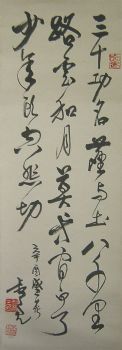 三十功名塵与土八千里
路雲和月莫等閒白了
少年頭空悲切